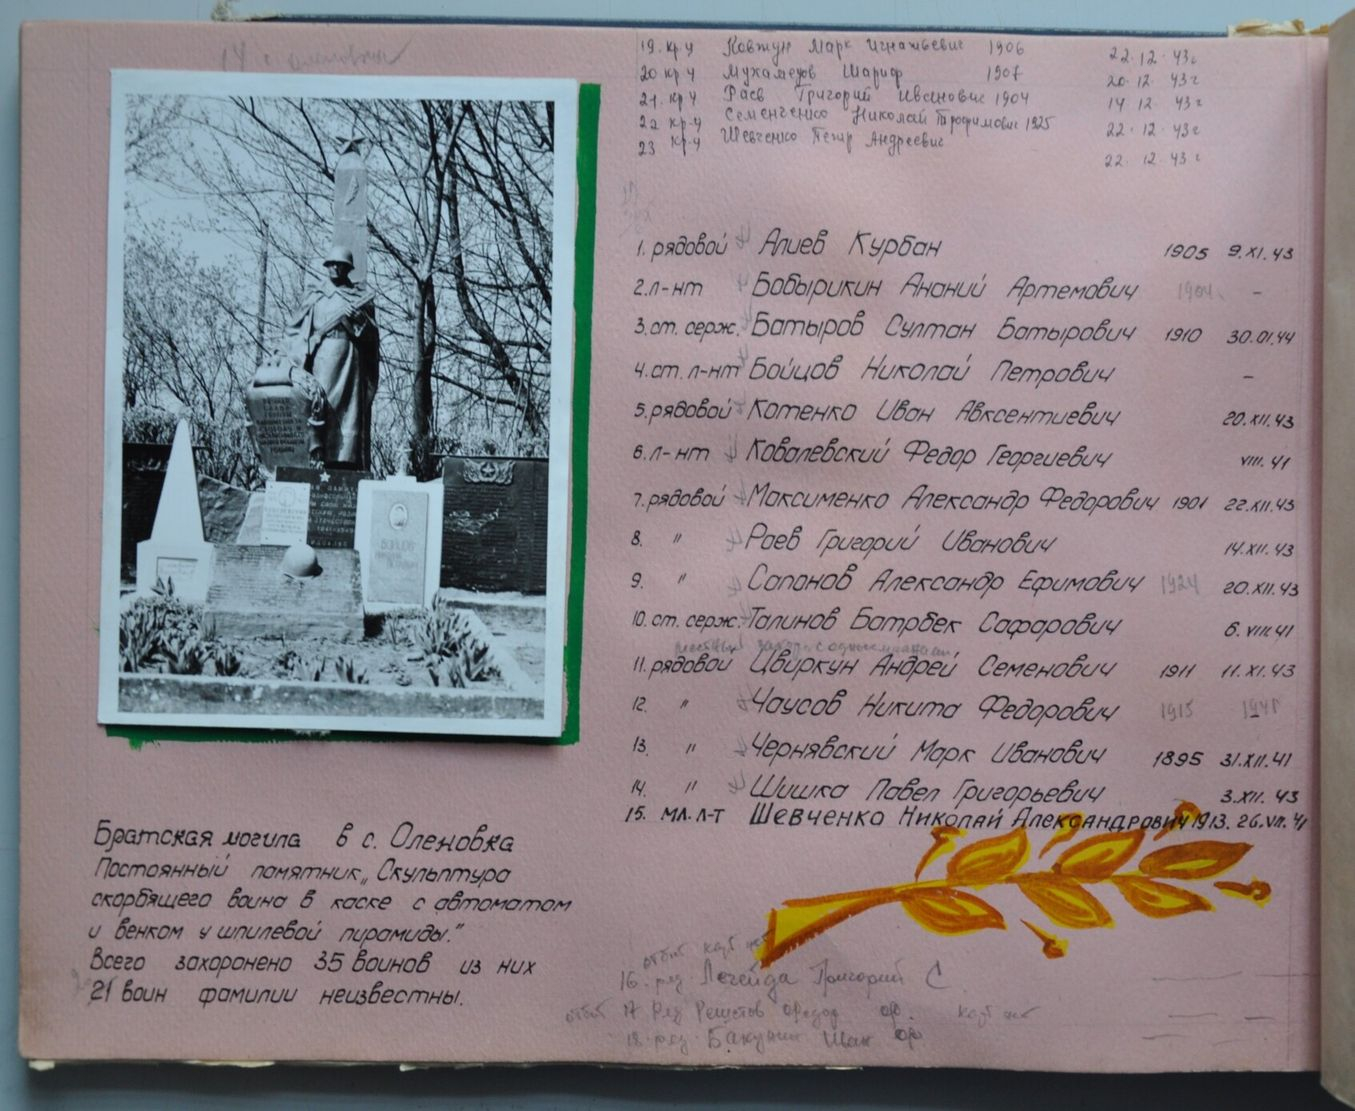 14 с.
19. кр-ц Ковтун Марк Игнатьевич 1906 22.12.43г
20 кр ц Мухамедов Шариф 1907 20.12.43г
21. кр ц Раев Григорий Иванович 1904 14.12.43г
22 кр-ц Семенченко Николай Трофимович 1925 22.12.43г
23 кр-ц Шевченко Петр Андреевич 22.12.43г
1. рядовой Алиев Курбан 1905 9.XI.43
2. л-нт Бобырикин Ананий Артемович 1904 -
3. ст. серж. Батыров Султан Батырович 1910 30.01.44
4. ст. л-нт Бойцов Николай Петрович -
5. рядовой Котенко Иван Авксентиевич 20.XII.43
6. л-нт Ковалевский Федор Георгиевич VIII.41
7. рядовой Максименко Александр Федорович 1901 22.XII.43
8. " Раев Григорий Иванович 14.XII.43
9. " Сапонов Александр Ефимович 1924 20.XII.43
10. ст. серж. Талинов Батрбек Сафарович 6.VIII.41
11. рядовой Цвиркун Андрей Семенович 1911 11.XI.43
12. " Чаусов Никита Федорович 1915 1941
13. " Чернявский Марк Иванович 1895 31.XII.41
14. " Шишка Павел Григорьевич 3.XII.43
15. мл. л-т Шевченко Николай Александрович 1913. 26.VII.41
16. ряд Легейда Григорий С
17 ряд Решетов Федор Ф.
18. ряд. Бакунин Иван Ф
БОЙЦОВ
Братская могила в с. Оленовка
Постоянный памятник „Скульптура
скорбящего воина в каске с автоматом
и венком у шпилевой пирамиды."
Всего захоронено 35 воинов из них
21 воин фамилии неизвестны.